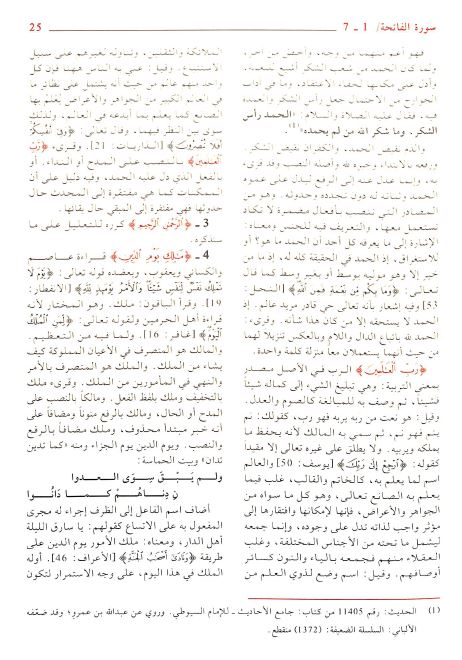 سورة الفاتحة/ 1 ـ 7
25
فهو أعم منهما من وجه، وأخص من آخر،
ولما كان الحمد من شعب الشكر أشيع للنعمة،
وأدل على مكانها لخفاء الاعتقاد، وما في آداب
الجوارح من الاحتمال جعل رأس الشكر والعمدة
فيه، فقال عليه الصلاة والسلام: «الحمد رأس
الشكر. وما شكر الله من لم يحمده»(1).
والذم نقيض الحمد، والكفران نقيض الشكر.
ورفعه بالابتداء وخبره لله وأصله النصب وقد قرىء
به، وإنما عدل عنه إلى الرفع ليدل على عموم
الحمد وثباته له دون تجدده وحدوثه. وهو من
المصادر التي تنصب بأفعال مضمرة لا تكاد
تستعمل معها، والتعريف فيه للجنس ومعناه:
الإشارة إلى ما يعرفه كل أحد أن الحمد ما هو؟ أو
للاستغراق، إذ الحمد في الحقيقة كله له، إذ ما من
خير إلا وهو موليه بوسط أو بغير وسط كما قال
تعالى: ﴿وَمَا بِكُم مِّن نِّعْمَةٍ فَمِنَ اللَّهِ﴾ [النحل:
53] وفيه إشعار بأنه تعالى حي قادر مريد عالم. إذ
الحمد لا يستحقه إلا من كان هذا شأنه. وقرىء:
الحمد لله باتباع الدال واللام وبالعكس تنزيلاً لهما
من حيث أنهما يستعملان معاً منزلة كلمة واحدة.
﴿رَبِّ الْعَالَمِينَ﴾ الرب في الأصل مصدر
بمعنى التربية: وهي تبليغ الشيء إلى كماله شيئاً
فشيئاً، ثم وصف به للمبالغة كالصوم والعدل.
وقيل: هو نعت من ربه يربه فهو رب، كقولك: نم
ينم فهو نم، ثم سمي به المالك لأنه يحفظ ما
يملكه ويربيه. ولا يطلق على غيره تعالى إلا مقيداً
كقوله: ﴿ارْجِعْ إِلَى رَبِّكَ﴾ [يوسف: 50] والعالم
اسم لما يعلم به، كالخاتم والقالب، غلب فيما
يعلم به الصانع تعالى، وهو كل ما سواه من
الجواهر والأعراض، فإنها لإمكانها وافتقارها إلى
مؤثر واجب لذاته تدل على وجوده، وإنما جمعه
ليشمل ما تحته من الأجناس المختلفة، وغلب
العقلاء منهم فجمعه بالياء والنون كسائر
أوصافهم. وقيل: اسم وضع لذوي العلم من
الملائكة والثقلين، وتناوله لغيرهم على سبيل
الاستتباع. وقيل: عني به الناس ههنا فإن كل
واحد منهم عالم من حيث أنه يشتمل على نظائر ما
في العالم الكبير من الجواهر والأعراض يُعلم بها
الصانع كما يعلم بما أبدعه في العالم، ولذلك
سوى بين النظر فيهما، وقال تعالى: ﴿وَفِي أَنفُسِكُمْ
أَفَلَا تُبْصِرُونَ﴾ [الذاريات: 21]. وقرىء ﴿رَبِّ
الْعَالَمِينَ﴾ بالنصب على المدح أو النداء. أو
بالفعل الذي دل عليه الحمد، وفيه دليل على أن
الممكنات كما هي مفتقرة إلى المحدث حال
حدوثها فهي مفتقرة إلى المبقي حال بقائها.
3 ـ ﴿الرَّحْمَنِ الرَّحِيمِ﴾ كرره للتعليل على ما
سنذكره.
4 ـ ﴿مَالِكِ يَوْمِ الدِّينِ﴾ قراءة عاصم
والكسائي ويعقوب، ويعضده قوله تعالى: ﴿يَوْمَ لَا
تَمْلِكُ نَفْسٌ لِّنَفْسٍ شَيْئًا وَالْأَمْرُ يَوْمَئِذٍ لِّلَّهِ﴾ [الانفطار:
19]. وقرأ الباقون: ملك. وهو المختار لأنه
قراءة أهل الحرمين ولقوله تعالى: ﴿لِّمَنِ الْمُلْكُ
الْيَوْمَ﴾ [غافر: 16]. ولما فيه من التعظيم.
والمالك هو المتصرف في الأعيان المملوكة كيف
يشاء من الملك. والملك هو المتصرف بالأمر
والنهي في المأمورين من الملك. وقرىء ملك
بالتخفيف وملك بلفظ الفعل. ومالكاً بالنصب على
المدح أو الحال، ومالك بالرفع منوناً ومضافاً على
أنه خبر مبتدأ محذوف، وملك مضافاً بالرفع
والنصب. ويوم الدين يوم الجزاء ومنه «كما تدين
تدان» وبيت الحماسة:
ولم يَبْقَ سِوَى العدوا
نِ دِنَّاهُمْ كما دَانُوا
أضاف اسم الفاعل إلى الظرف إجراء له مجرى
المفعول به على الاتساع كقولهم: يا سارق الليلة
أهل الدار، ومعناه: ملك الأمور يوم الدين على
طريقة ﴿وَنَادَى أَصْحَابُ الْجَنَّةِ﴾ [الأعراف: 46]. أو له
الملك في هذا اليوم، على وجه الاستمرار لتكون
(1) الحديث: رقم 11405 من كتاب: جامع الأحاديث ـ للإمام السيوطي. وروي عن عبدالله بن عمرو؛ وقد ضعّفه
الألباني: السلسلة الضعيفة: (1372) منقطع.